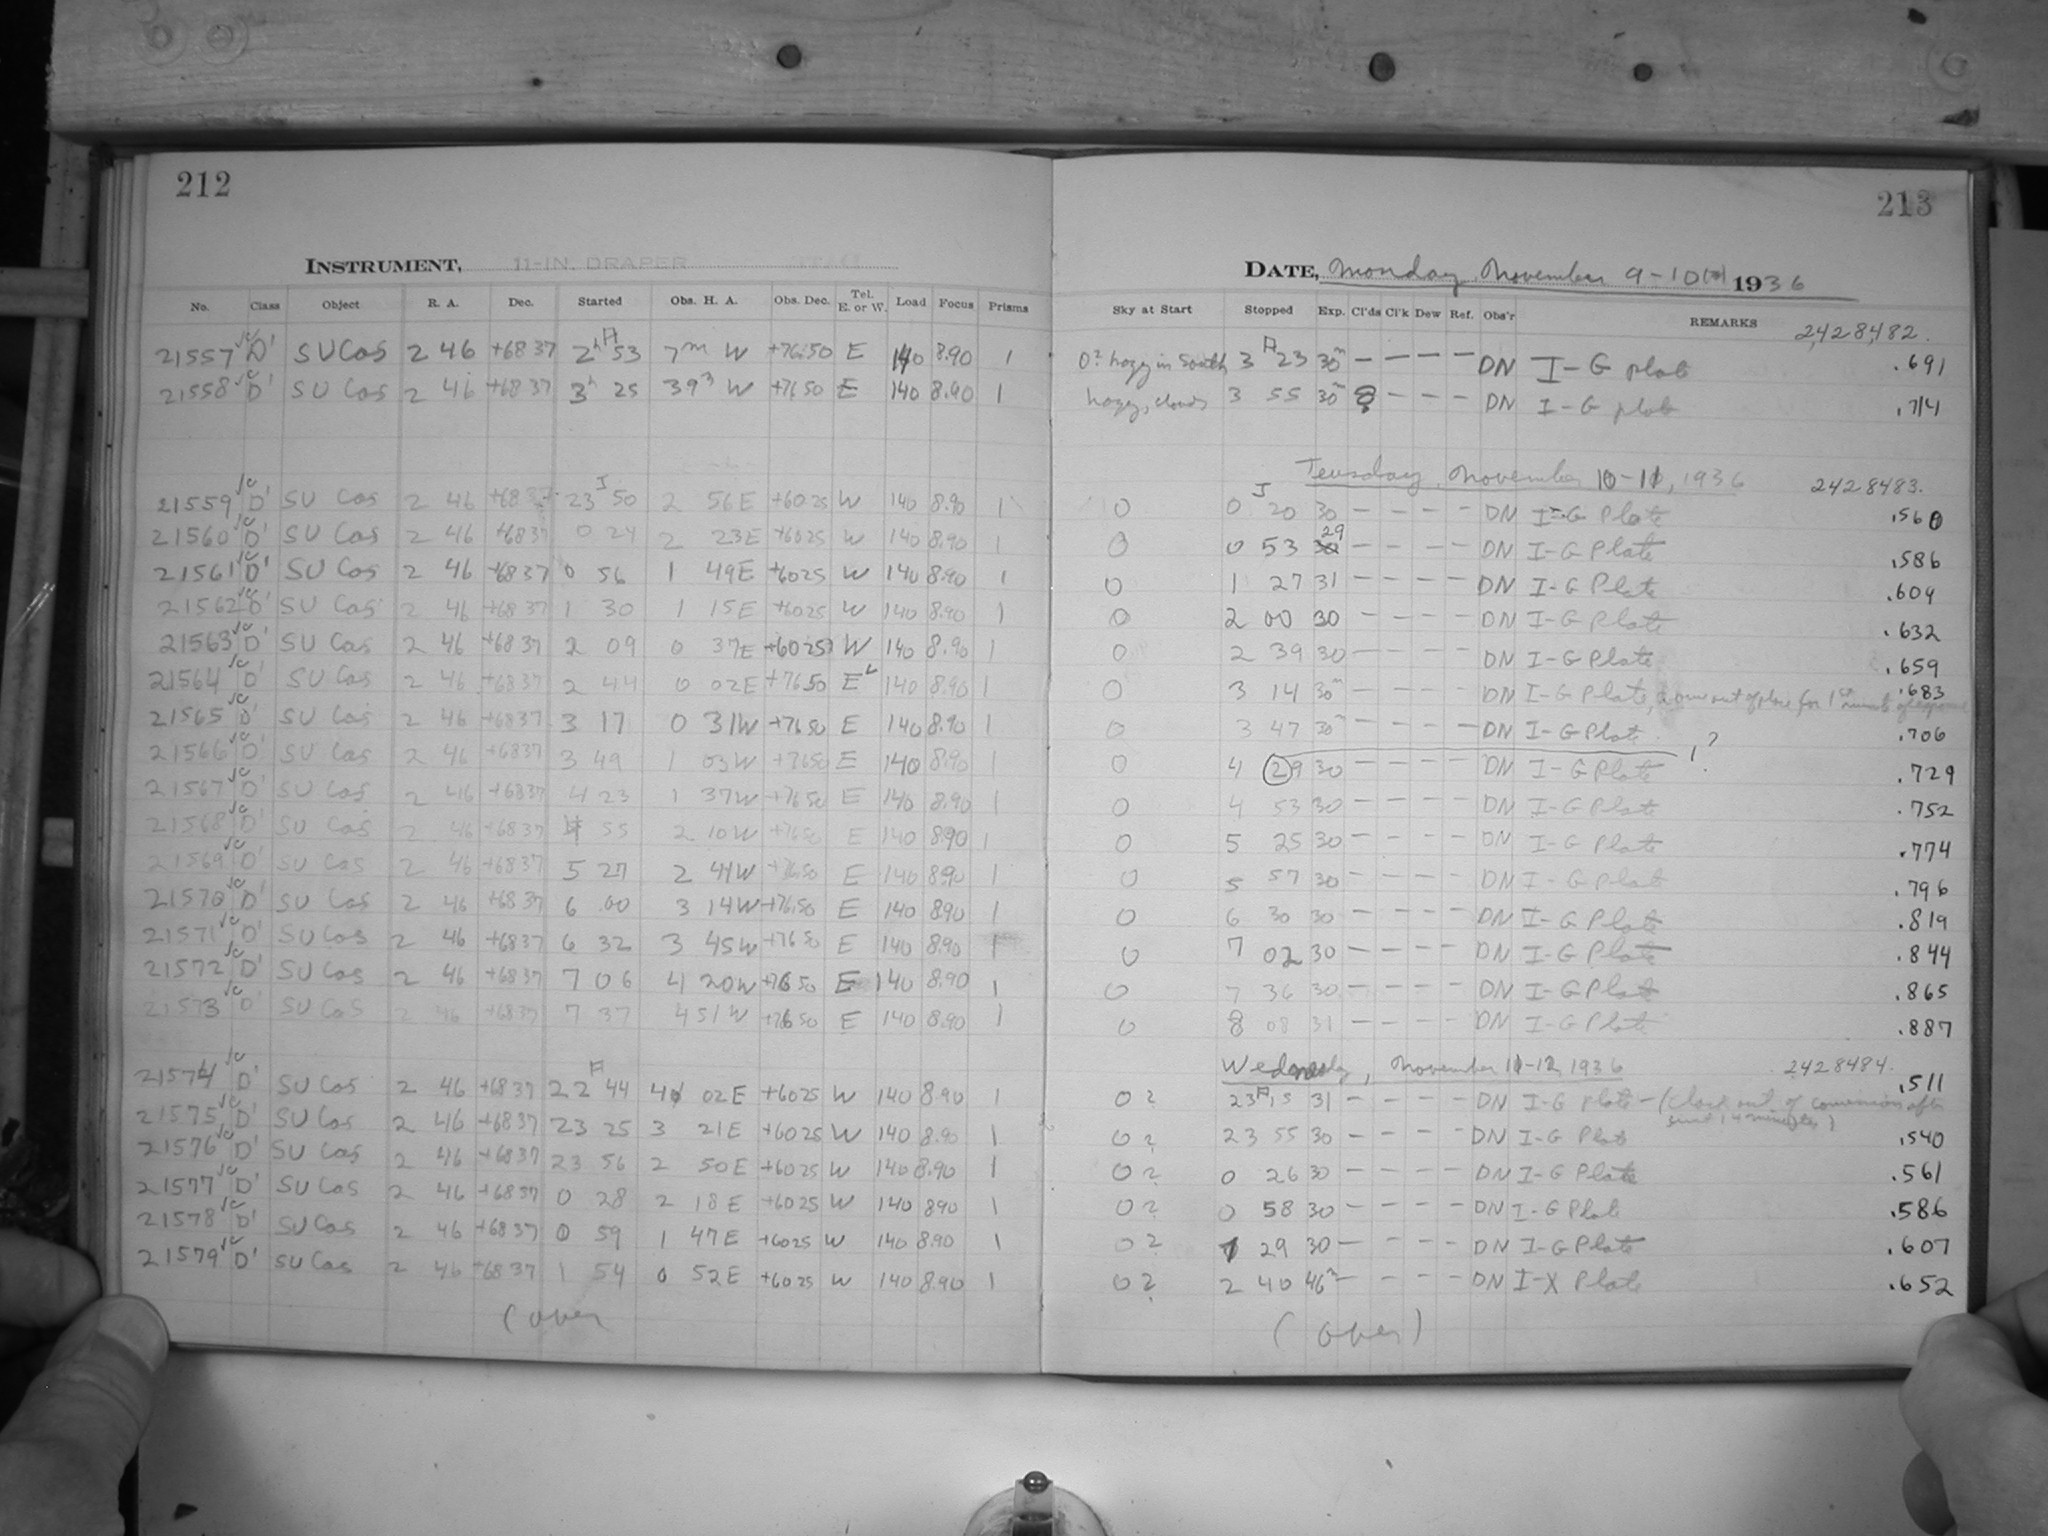 212
213
INSTRUMENT, 11-IN. DRAPER
DATE, Monday, November 9-10 1936
No. Class Object R. A. Dec. Started Obs. H. A. Obs. Dec. Tel. E. or W. Load Focus Prisms Sky at Start Stopped Exp. Cl'ds Cl'k Dew Ref. Obs'r REMARKS
2,428,482.
21557 D' SU Cas 2 46 +68 37 2h 53 7m W +76.50 E 140 8.90 1 0? hazy in South 3 23 30m — — — — DN I-G plate .691
21558 D' SU Cas 2 46 +68 37 3h 25 39 W +76 50 E 140 8.90 1 hazy, clouds 3 55 30m — — — DN I-G plate .714
Teusday, November 10-11, 1936 2428483.
21559 D' SU Cas 2 46 +68 37 23 50 2 56E +60 25 W 140 8.90 1 0 0 20 30 — — — — DN I-G Plate .560
21560 D' SU Cas 2 46 +68 37 0 24 2 23E +60 25 W 140 8.90 1 0 0 53 29 — — — — DN I-G Plate .586
21561 D' SU Cas 2 46 +68 37 0 56 1 49E +60 25 W 140 8.90 1 0 1 27 31 — — — — DN I-G Plate .609
21562 D' SU Cas 2 46 +68 37 1 30 1 15E +60 25 W 140 8.90 1 0 2 00 30 — — — — DN I-G Plate .632
21563 D' SU Cas 2 46 +68 37 2 09 0 37E +60 25 W 140 8.90 1 0 2 39 30 — — — — DN I-G Plate .659
21564 D' SU Cas 2 46 +68 37 2 44 0 02E +76.50 E 140 8.90 1 0 3 14 30m — — — — DN I-G Plate, out of place for 1st minute of .683
21565 D' SU Cas 2 46 +68 37 3 17 0 31W +76 50 E 140 8.90 1 0 3 47 30m — — — — DN I-G Plate .706
21566 D' SU Cas 2 46 +68 37 3 49 1 03W +76 50 E 140 8.90 1 0 4 29 30 — — — — DN I-G Plate ? .729
21567 D' SU Cas 2 46 +68 37 4 23 1 37W +76 50 E 140 8.90 1 0 4 53 30 — — — — DN I-G Plate .752
21568 D' SU Cas 2 46 +68 37 4 55 2 10W +76 50 E 140 8.90 1 0 5 25 30 — — — — DN I-G Plate .774
21569 D' SU Cas 2 46 +68 37 5 27 2 41W +76 50 E 140 8.90 1 0 5 57 30 — — — — DN I-G Plate .796
21570 D' SU Cas 2 46 +68 37 6 00 3 14W +76.50 E 140 8.90 1 0 6 30 30 — — — — DN I-G Plate .819
21571 D' SU Cas 2 46 +68 37 6 32 3 45W +76 50 E 140 8.90 1 0 7 02 30 — — — — DN I-G Plate .844
21572 D' SU Cas 2 46 +68 37 7 06 4 20W +76 50 E 140 8.90 1 0 7 36 30 — — — — DN I-G Plate .865
21573 D' SU Cas 2 46 +68 37 7 37 4 51W +76 50 E 140 8.90 1 0 8 08 31 — — — — DN I-G Plate .887
Wednesday, November 11-12, 1936 2428484.
21574 D' SU Cas 2 46 +68 37 22 44 4 02E +60 25 W 140 8.90 1 0? 23 15 31 — — — — DN I-G plate - (clock out of after .511
21575 D' SU Cas 2 46 +68 37 23 25 3 21E +60 25 W 140 8.90 1 0? 23 55 30 — — — — DN I-G Plate .540
21576 D' SU Cas 2 46 +68 37 23 56 2 50E +60 25 W 140 8.90 1 0? 0 26 30 — — — — DN I-G Plate .561
21577 D' SU Cas 2 46 +68 37 0 28 2 18E +60 25 W 140 8.90 1 0? 0 58 30 — — — — DN I-G Plate .586
21578 D' SU Cas 2 46 +68 37 0 59 1 47E +60 25 W 140 8.90 1 0? 1 29 30 — — — — DN I-G Plate .607
21579 D' SU Cas 2 46 +68 37 1 54 0 52E +60 25 W 140 8.90 1 0? 2 40 46m — — — — DN I-X Plate .652
(over
(over)